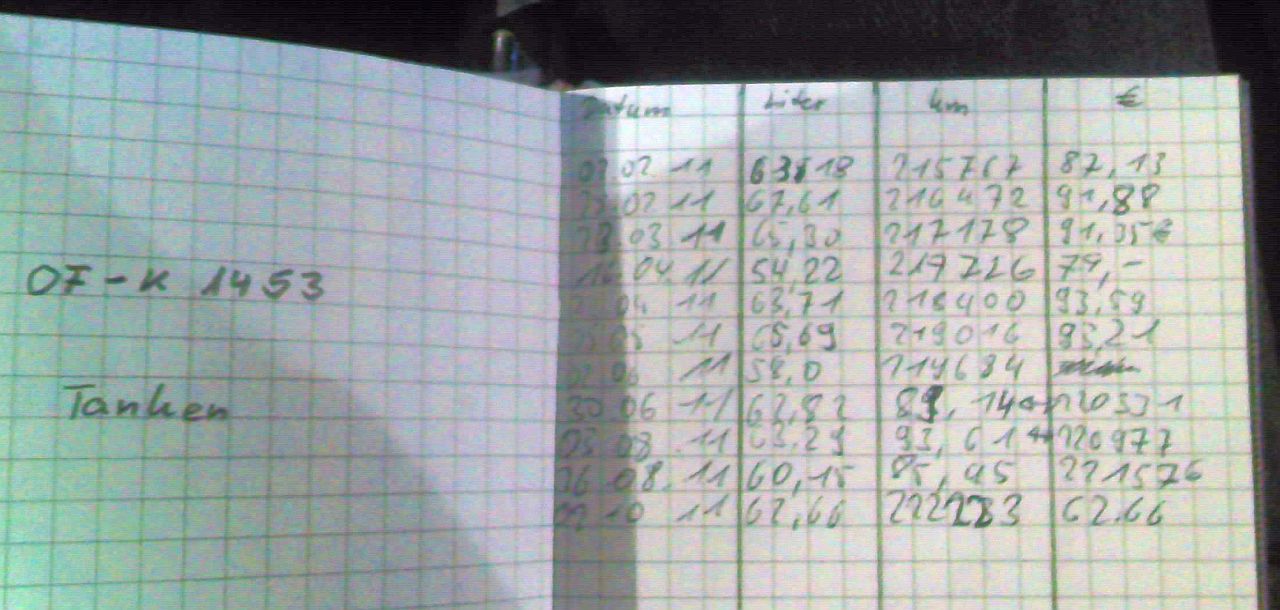 OF-K 1453
Tanken
Datum Liter km €
02.11 63,18 215767 87,13
02 11 67,61 216472 91,88
23.03 11 65,30 217178 91,35€
16.04.11 54,22 217726 79,-
04 11 63,71 218400 93,59
05 11 65,69 219016 93,21
06 11 58,0
30 06 11 62,82 89, 14 ↔ 220331
03 08 .11 63.29 93, 61 ↔ 220977
26 08.11 60,15 85, 95 221576
10 11 62,66 222283 62.66